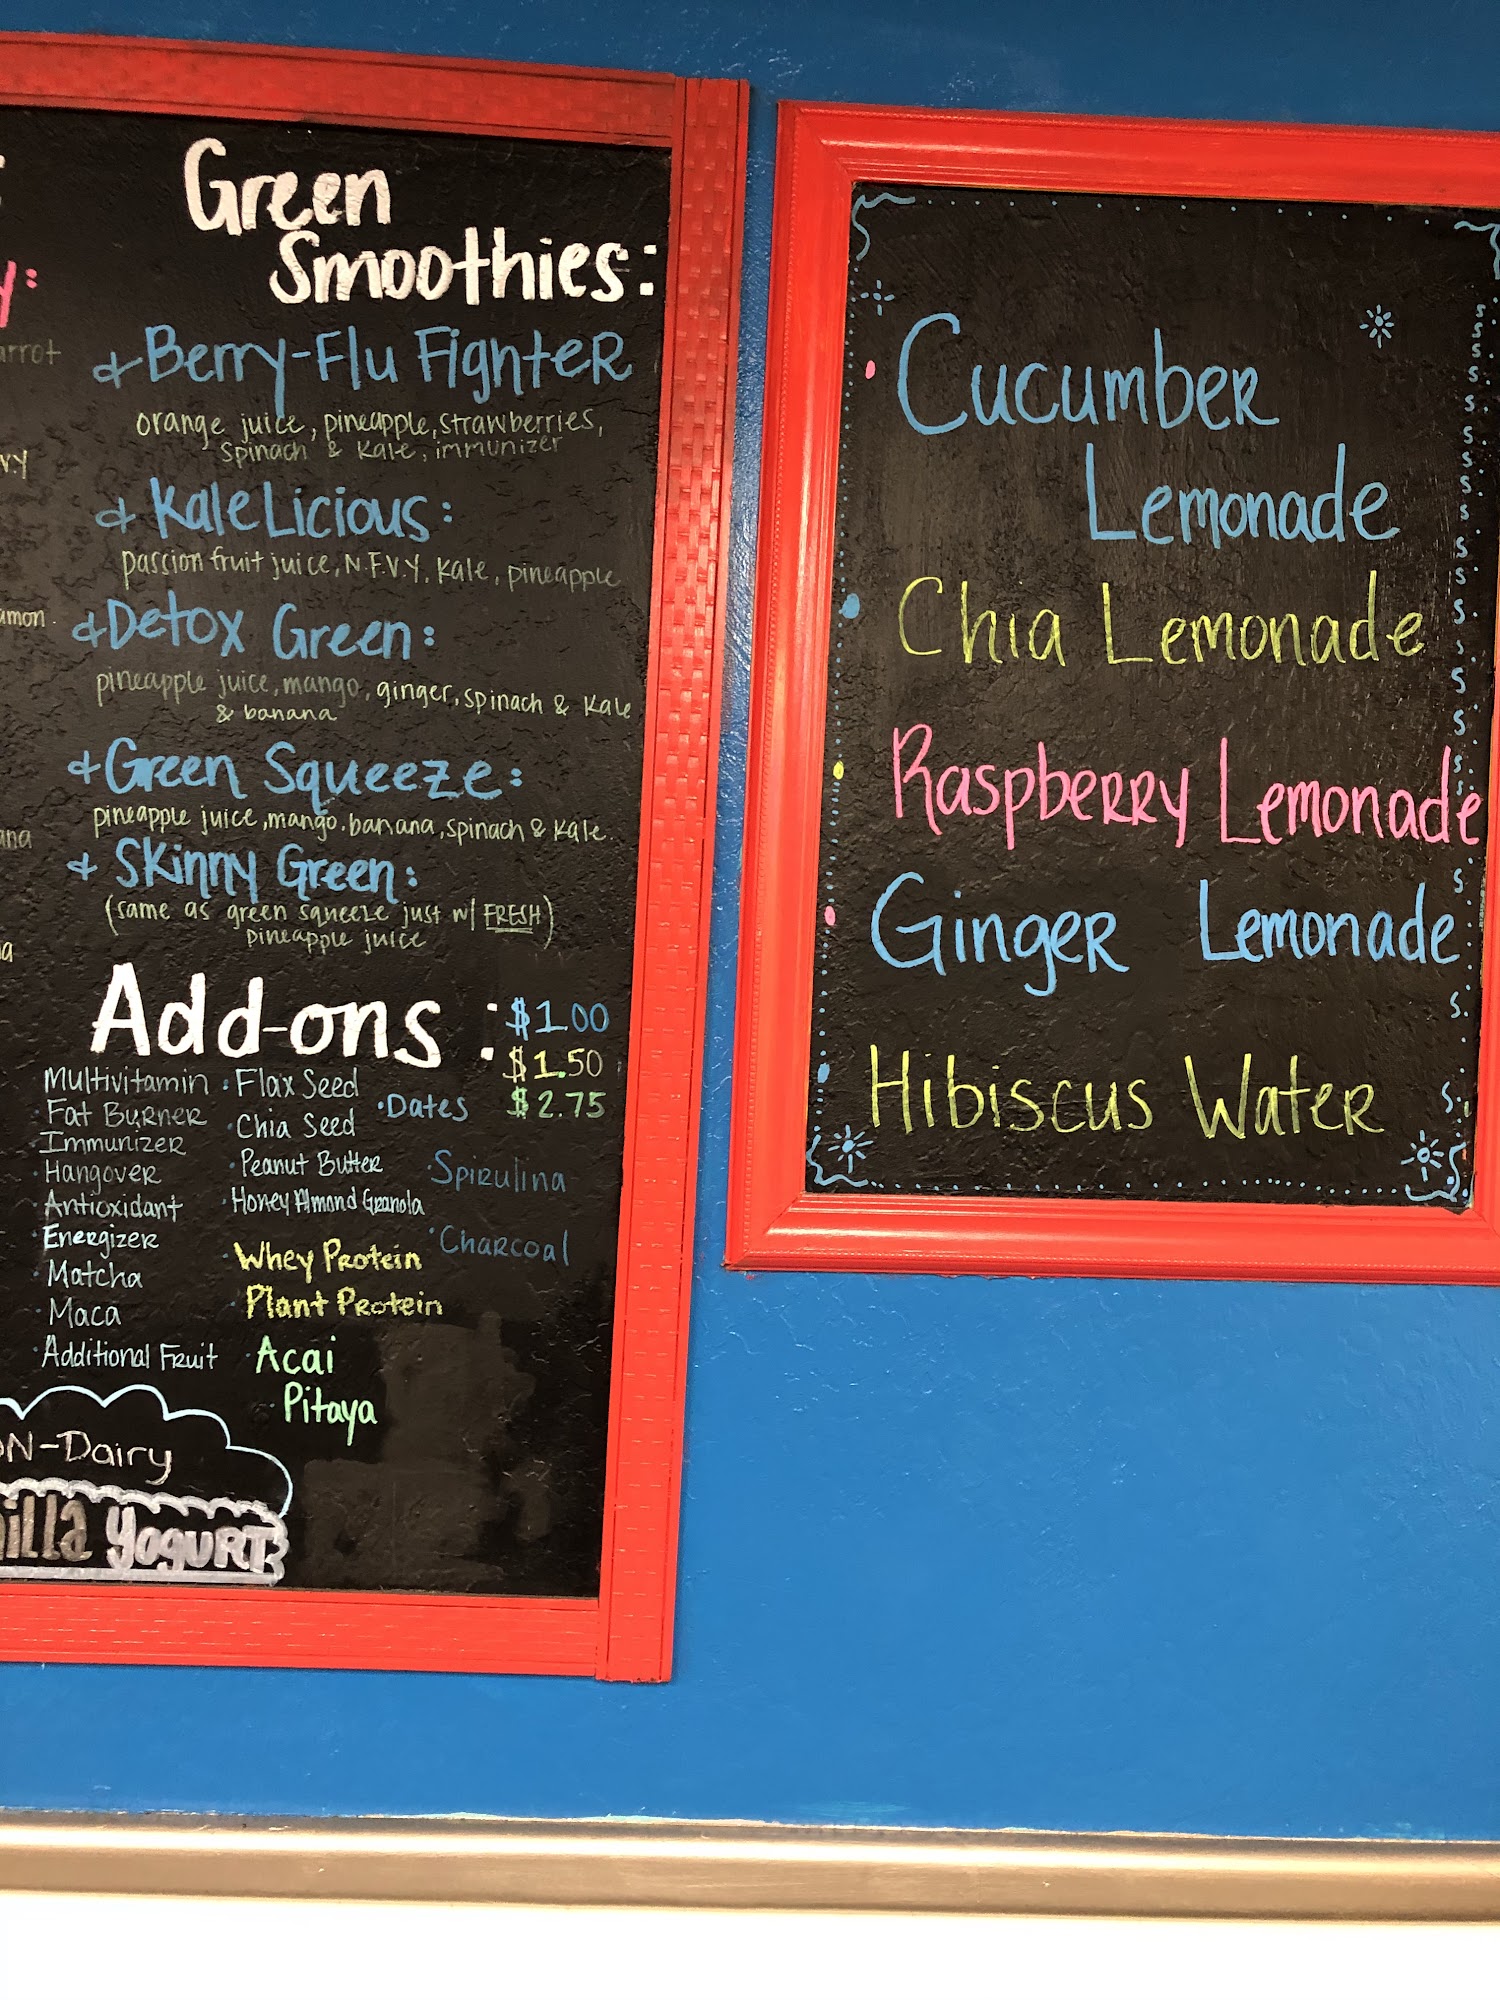 Green
Smoothies:
+ Berry-Flu Fighter
orange juice, pineapple, strawberries,
spinach & kale, immunizer
+ Kale Licious:
passion fruit juice, N.F.V.Y, kale, pineapple
+ Detox Green:
pineapple juice, mango, ginger, spinach & kale
& banana
+ Green Squeeze:
pineapple juice, mango, banana, spinach & kale.
+ Skinny Green:
(same as green squeeze just w/ FRESH)
pineapple juice
Add-ons : $1.00
$1.50
$2.75
Multivitamin
Fat Burner
Immunizer
· Hangover
Antioxidant
· Energizer
· Matcha
· Maca
· Additional Fruit
· Flax Seed
· Chia Seed
· Peanut Butter
· Honey Almond Granola
· Whey Protein
· Plant Protein
· Acai
· Pitaya
· Dates
· Spirulina
· Charcoal
N-Dairy
illa Yogurt
Cucumber
Lemonade
Chia Lemonade
Raspberry Lemonade
Ginger Lemonade
Hibiscus Water